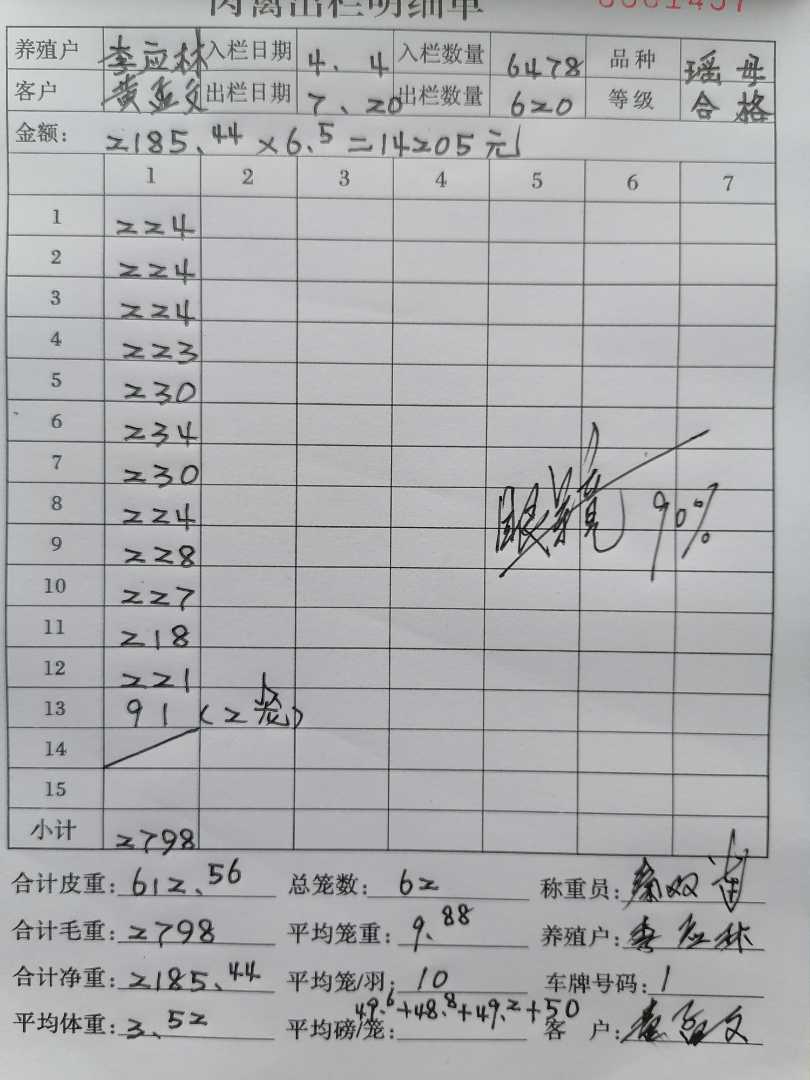 肉禽出栏明细单 0001457
养殖户 李应林 入栏日期 4.4 入栏数量 6478 品种 瑶母
客户 黄孟文 出栏日期 7.20 出栏数量 620 等级 合格
金额: 2185.44×6.5=14205元
1 2 3 4 5 6 7
1 224
2 224
3 224
4 223
5 230
6 234
7 230
8 224
9 228
10 227
11 218
12 221
13 91 (2笼)
14
15
眼镜 90%
小计 2798
合计皮重: 612.56 总笼数: 62 称重员:
合计毛重: 2798 平均笼重: 9.88 养殖户: 李应林
合计净重: 2185.44 平均笼/羽: 10 车牌号码: 1
平均体重: 3.52 平均磅/笼: 49.6+48.8+49.2+50 客 户: